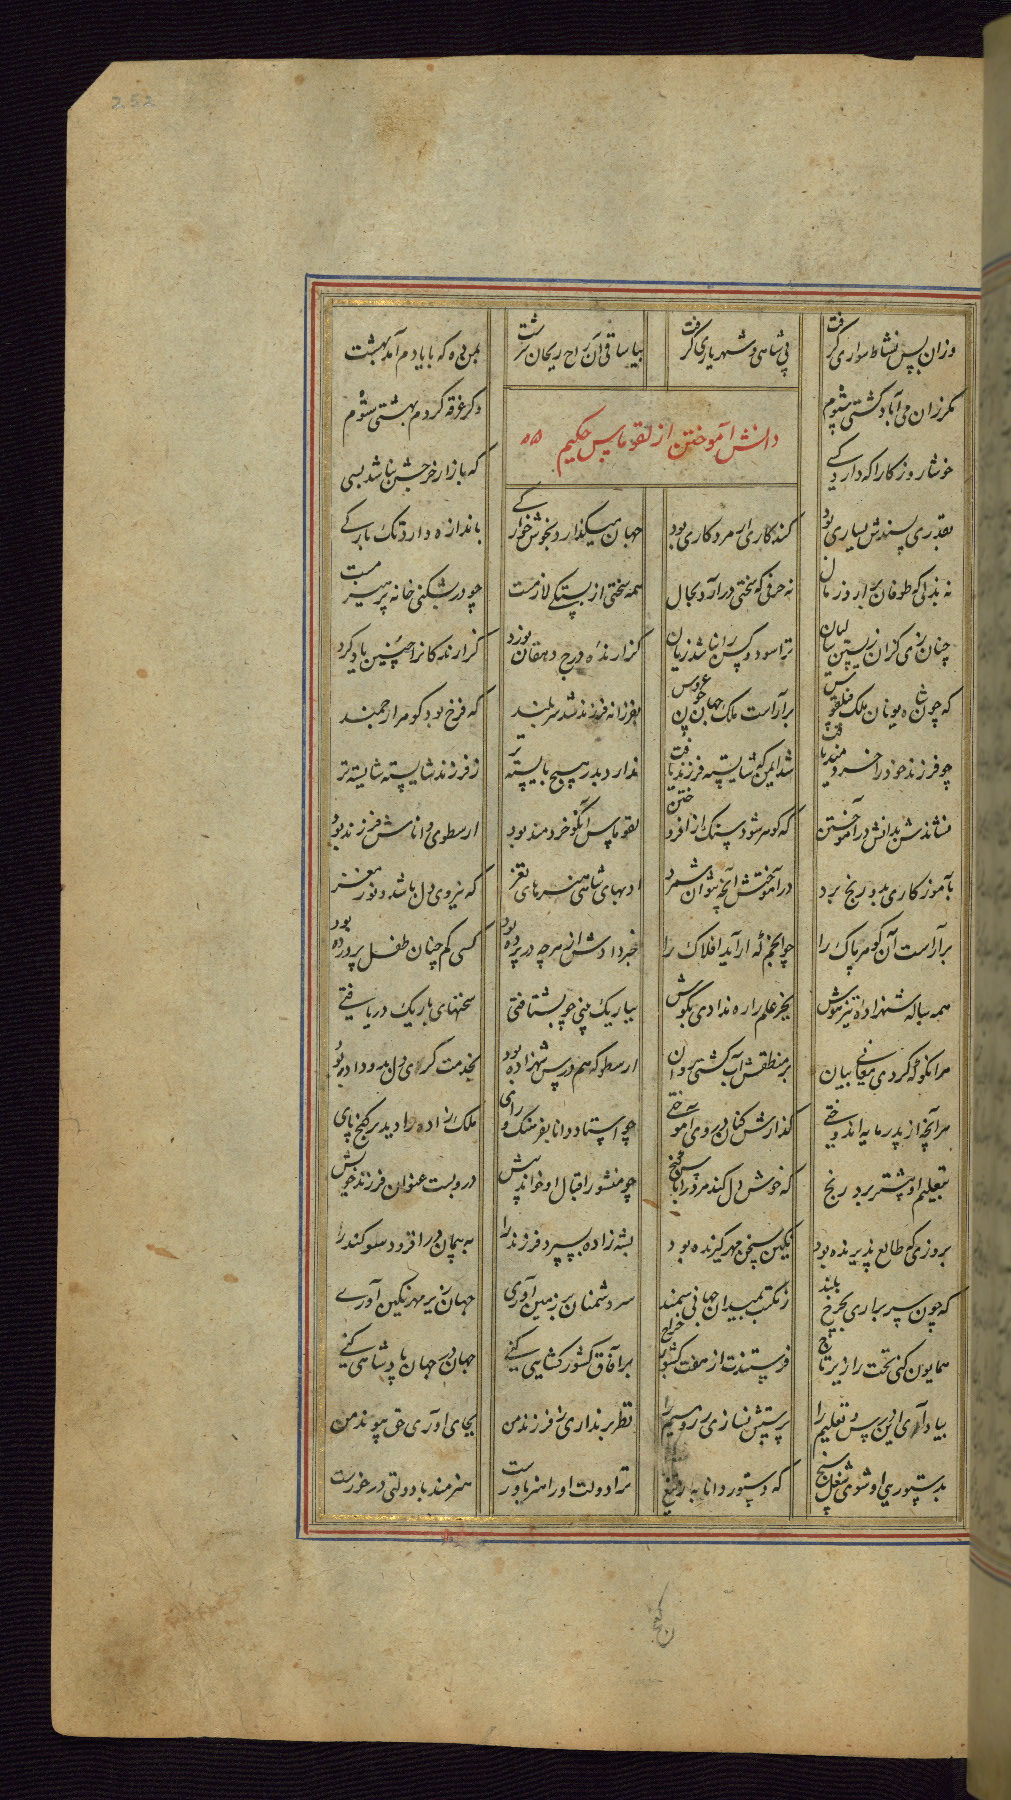 252
وزان پس نشاط سواری گرفت پی شاهی و شهریاری گرفت بیا ساقی آن راح ریحان سرشت بمن ده که با یادم آمد بهشت
مگر زان می آباد کشتی شوم وگر غرقه گردم بهشتی شوم
دانش آموختن از نقوماجس حکیم
خوشا روزگارا که دارد کسی که بازار حرصش نباشد بسی
بقدر پسندش یساری بود کند کاری ار مرد کاری بود جهان میگذارد بخوش خوارگی باندازه دارد تک بارگی
نه بذلی که طوفان برآرد ز مال نه حرفی که سختی درآرد بحال همه سختی از بستگی لازمست چو در بشکنی خانه پر هیزمست
چنان زی کزان زیستن سالیان ترا سود و کس را نباشد زیان گزارنده درج دهقان نورد گزارندگانرا چنین یاد کرد
که چون شاه یونان ملک فیلقوس برآراست ملک جهان چون عروس بفرزانه فرزند شد سربلند که فرخ بود گوهر ارجمند
چو فرزند خود را خردمند یافت شد ایمن که شایسته فرزند یافت ندارد پدر هیچ بایسته تر ز فرزند شایسته شایسته تر
نشاندش بدانش در آموختن که گوهر شود سنگ از افروختن نقوماجس آنکو خردمند بود ارسطوی داناش فرزند بود
بآموزگاری بدو رنج برد درآموختش آنچه نتوان شمرد ادبهای شاهی هنرهای نغز که نیروی دل باشد و نور مغز
برآراست آن گوهر پاک را چو انجم که آراید افلاک را خبر دادش از هرچه در پرده بود کسی کم چنان طفل پرورده بود
همه ساله شهزاده تیزهوش بجز علم را ره ندادی بگوش بباریک بینی چو بشتافتی سخنهای باریک دریافتی
هر آنگونه کردی معانی بیان بر منطقش آب گشتی روان ارسطو که هم درس شهزاده بود بخدمت گری دل بدو داده بود
هر آنچه از پدر مایه اندوختی گذارش کنان در وی آموختی چو استاد دانا بفرهنگ و رای ملک زاده را دید بر گنج پای
بتعلیم او بیشتر برد رنج که خوش دل کند مرد را پاس گنج چو منشور اقبال او خواند پیش درو بست عنوان فرزند خویش
بروزی که طالع پذیرنده بود نگین سخن مهر گیرنده بود بشه زاده بسپرد فرزند را به پیمان در افزود سوگند را
که چون سر براری بچرخ بلند ز مکتب بمیدان جهانی سمند سر دشمنان بر زمین آوری جهان زیر مهر نگین آوری
همایون کنی تخت را زیر تاج فرستندت از هفت کشور خراج بر آفاق کشور کشایی کنی جهان در جهان پادشاهی کنی
بیاد آری این درس و تعلیم را پرستش نسازی زر و سیم را نظر برنداری ز فرزند من بجای آوری حق پیوند من
بدستوری او شوی شغل سنج که دستور دانا به از تیغ و گنج ترا دولت او را هنر یاورست هنرمند با دولتی درخورست